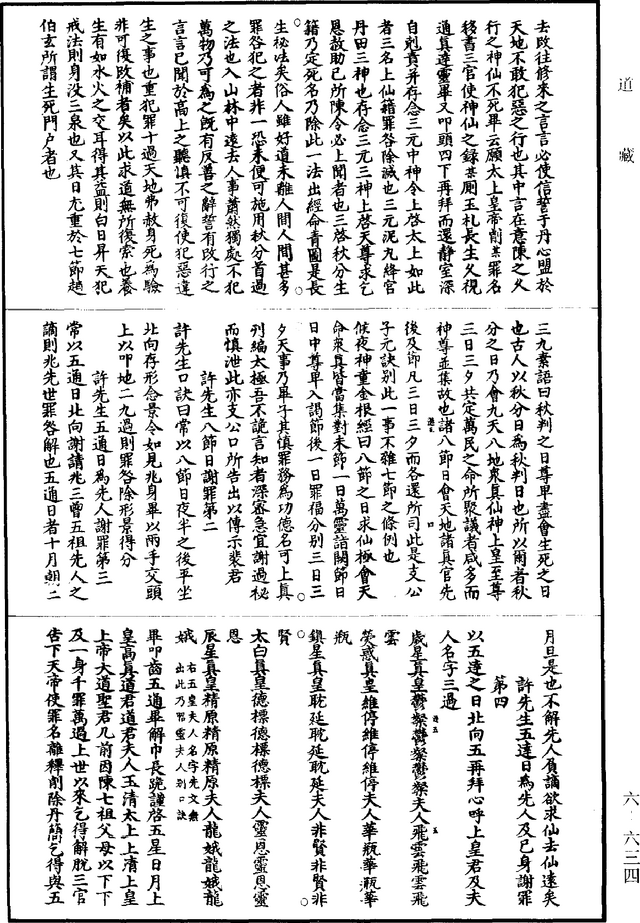 去改往修來之言言必使信誓于丹心盟於
天地不敢犯惡之行也其中言在意陳之久
行之神仙不死畢云願太上皇帝削某罪名
移書三官使神仙之錄某刻玉札長生久視
通真達靈畢又叩頭四下再拜而還静室深
自剋責并存念三元中神令上啓太上如此
者三名上仙籍罪咎除滅也三元泥丸絳宮
丹田三神也存念三元三神上啓天尊求乞
恩赦助己所陳令必上聞者也三啓秋分生
籍乃定死名乃除此一法出經命青圖是長
生秘法矣俗人雖好道未離人間人間甚多
罪咎犯之者非一恐未便可施用秋分首過
之法也入山林中遠去人事蕭然獨處不犯
萬物乃可爲之既有反善之辭誓有改行之
言言已聞於高上之聽慎不可復使犯惡違
生之事也重犯罪十過天地弗赦身死爲驗
非可復改補者矣以此求道無所復索也養
生有如水火之交耳得其益則白日昇天犯
戒法則身没三泉也又其日尤重於七節趙
伯玄所謂生死門户者也
三九素語曰秋判之日尊卑盡會生死之日
也古人以秋分日爲秋判日也所以爾者秋
分之日乃會九天八地衆真仙神上皇至尊
三日三夕共定萬民之命所聚議者咸多而
神尊並集故也諸八節日會天地諸真官先
後及節凡三日三夕而各還所司此是支公
子元訣别此一事不雜七節之條例也
候夜神童金根經曰八節之日求仙極會天
命衆真皆當集對未節一日萬靈詣闕節日
日中尊卑入謁節後一日罪福分别三日三
夕天事乃畢子其慎罪務爲功德名可上真
列編太極吾不詭言知者深密急宜謝過秘
而慎泄此亦支公口所告出以傳示裴君
許先生八節日謝罪第二
許先生口訣曰常以八節日夜半之後平坐
北向存形念景令如見兆身畢以兩手交頭
上以叩地二九過則罪咎除形景得分
許先生五通日爲先人謝罪第三
常以五通日北向謝請兆三曾五祖先人之
謫則兆先世罪咎解也五通日者十月朔二
月旦是也不解先人負謫欲求仙去仙遠矣
許先生五達日爲先人及已身謝罪
第四
以五達之日北向五再拜心呼上皇君及夫
人名字三過
歲星真皇鬱䉅鬱䉅鬱䉅夫人飛雲飛雲飛
雲
熒惑真皇維停維停維停夫人華瓶華瓶華
瓶
鎮星真皇耽延耽延耽延夫人非賢非賢非
賢
太白真皇德摽德摽德摽夫人靈恩靈恩靈
恩
辰星真皇精原精原精原夫人龍娥龍娥龍
娥 右五皇夫人名字先文無出此乃昭靈夫人别口訣
畢叩齒五通畢解巾長跪謹啓五星日月上
皇高真道君道君夫人玉清太上上清上皇
上帝大道聖君几前因陳七祖父母以下下
及一身千罪萬過上世以來乞得解脱三官
告下天帝使罪名離釋削除丹簡乞得與五
道藏
六-六三四